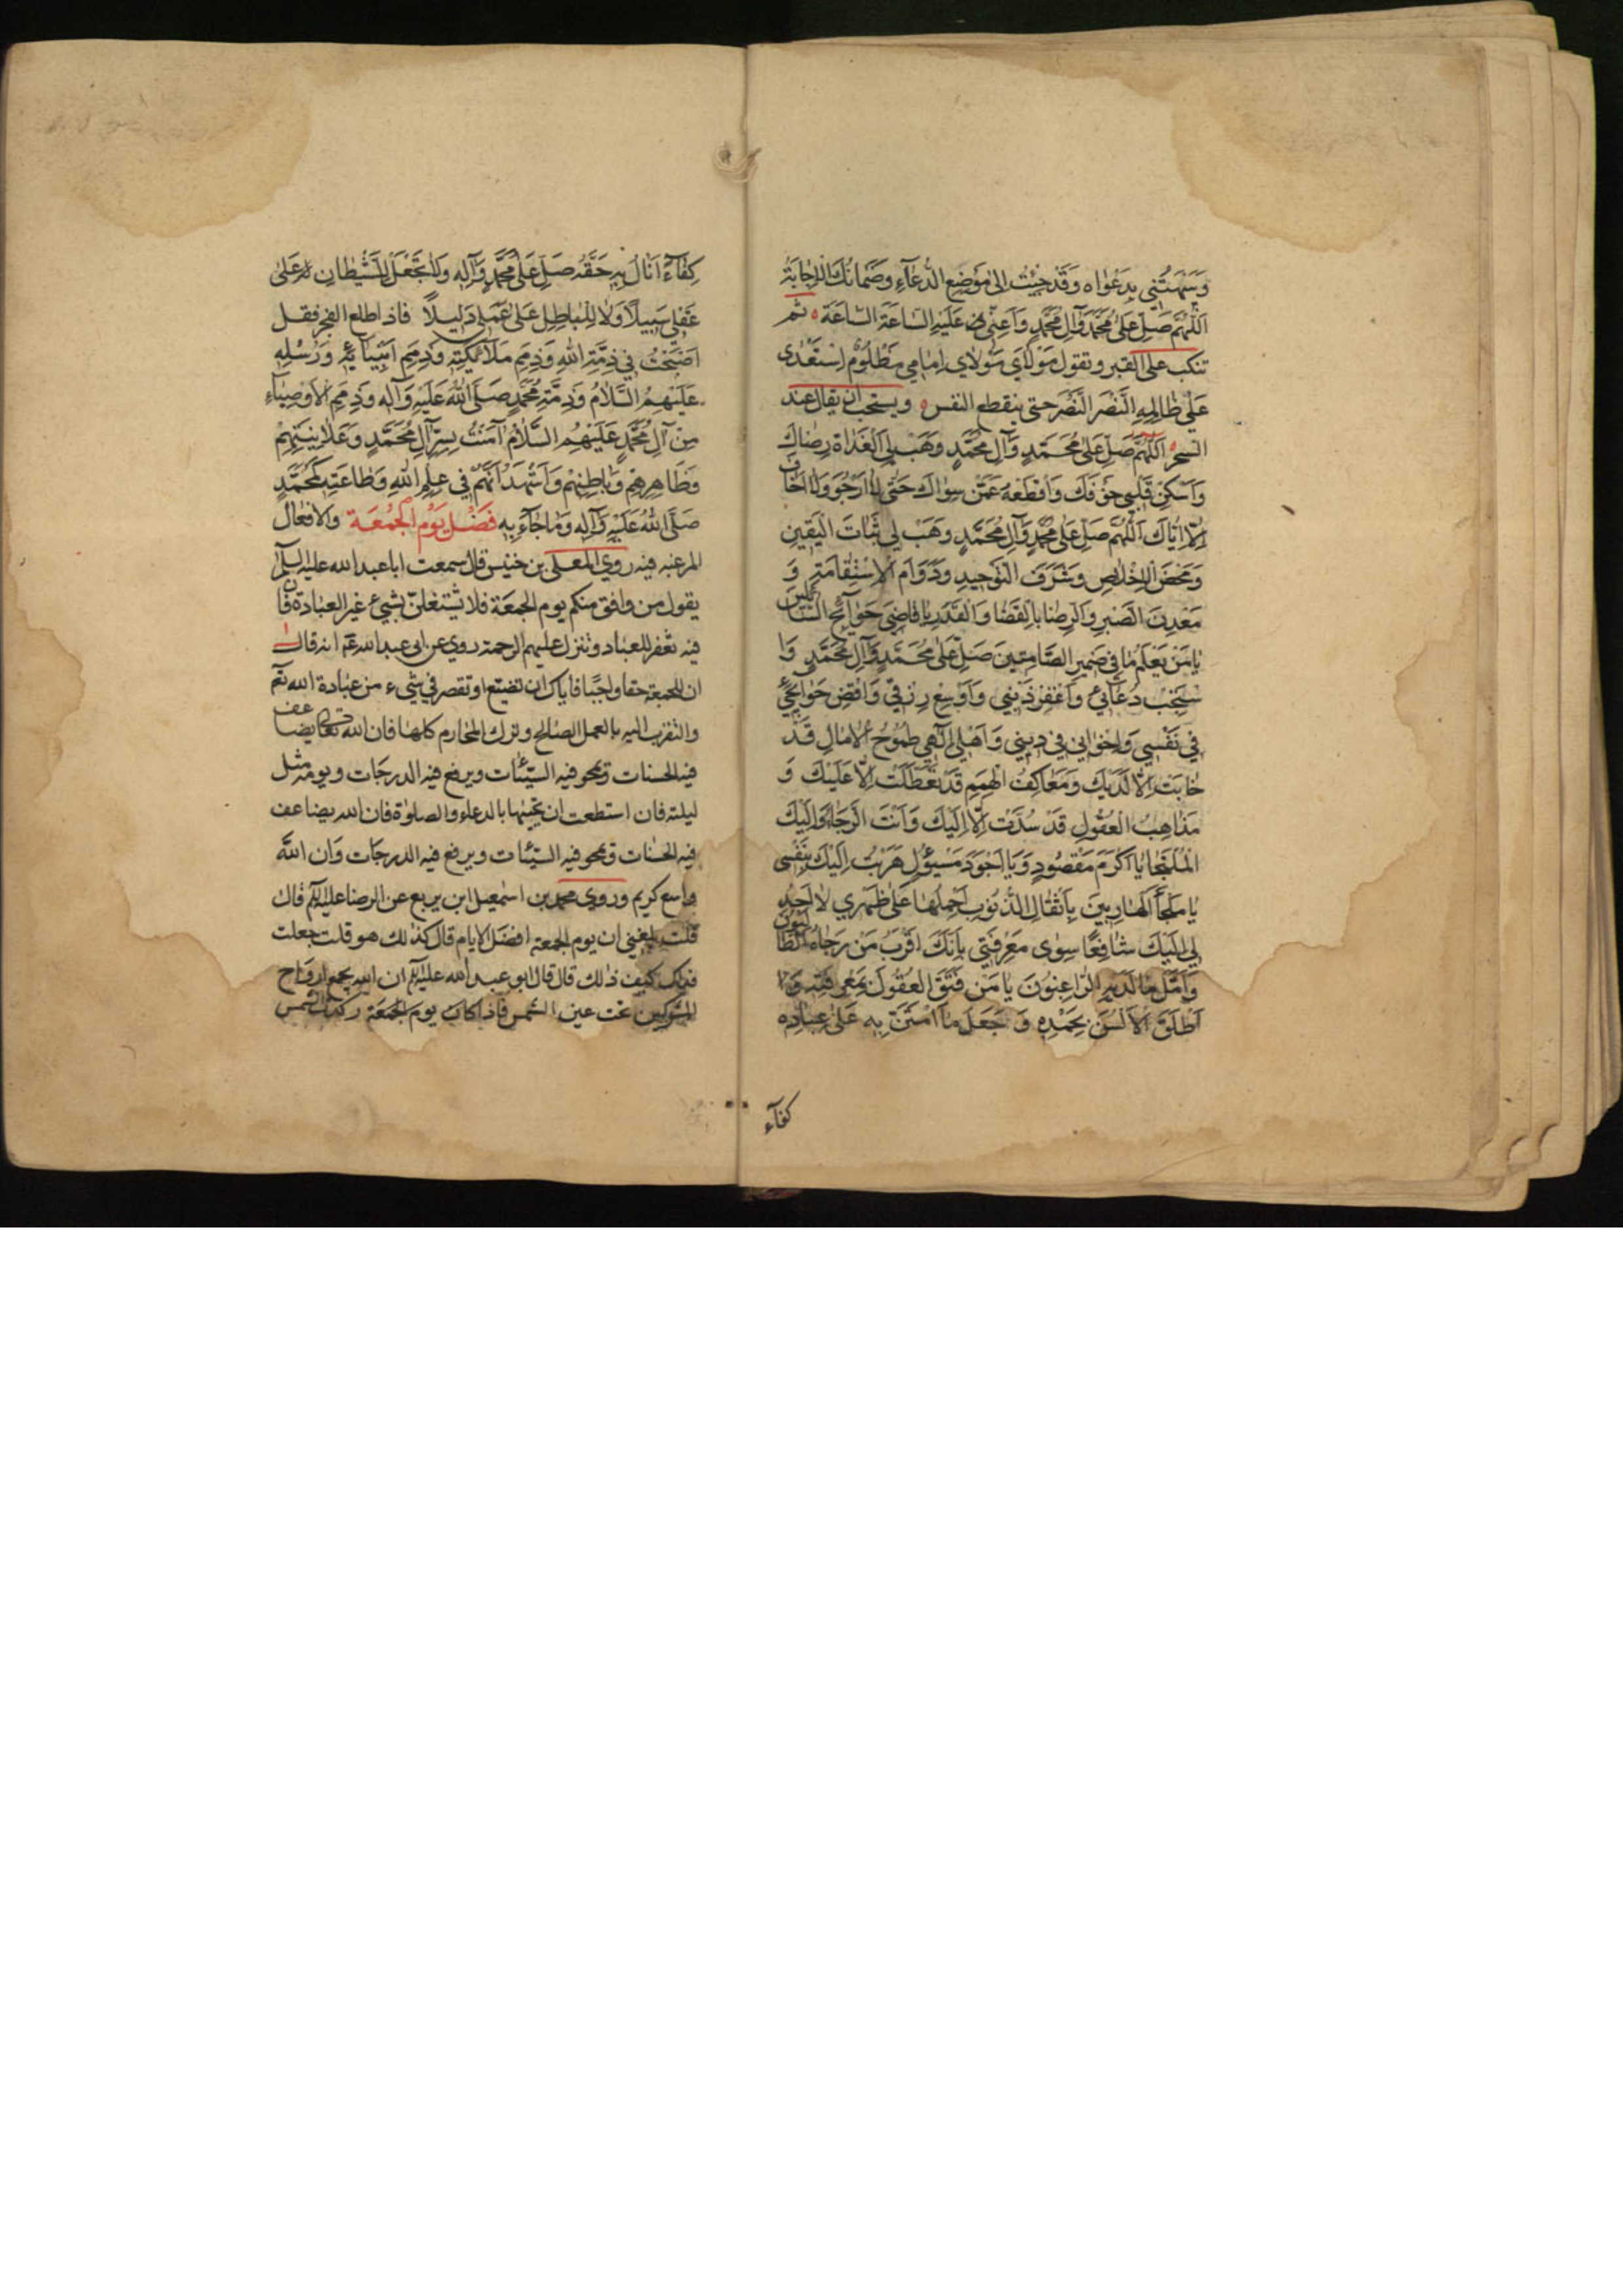 وَبَهَتَنِي بِدَعْوَاه وَقَدْ جِئْتُ اِلىٰ مَوْضِعِ الدُّعَآءِ وَضَمَانُكَ الْاِجَابَةُ
اَللّٰهُمَّ صَلِّ عَلىٰ مُحَمَّدٍ وَآلِ مُحَمَّدٍ وَاَعِنِّي عَلَيْهِ السَّاعَةَ السَّاعَةَ ثم
تنكب على القبر وتقول مَوْلَايَ مَوْلَاي اِمَامِي مَظْلُوْمٌ اسْتَعْدٰى
عَلىٰ ظَالِمِهِ النَّصْرَ النَّصْرَ حتى ينقطع النفس ويستحب ان يقال عند
السحر اَللّٰهُمَّ صَلِّ عَلىٰ مُحَمَّدٍ وَآلِ مُحَمَّدٍ وَهَبْ لِي الْغَدَاةَ رِضَاكَ
وَاَسْكِنْ قَلْبِي خَوْفَكَ وَاقْطَعْهُ عَمَّنْ سِوَاكَ حَتّٰى لَا اَرْجُوَ وَلَا اَخَافَ
اِلَّا اِيَّاكَ اَللّٰهُمَّ صَلِّ عَلىٰ مُحَمَّدٍ وَآلِ مُحَمَّدٍ وَهَبْ لِي ثَبَاتَ الْيَقِينِ
وَمَحْضَ الْاِخْلَاصِ وَشَرَفَ التَّوْحِيدِ وَدَوَامَ الْاِسْتِقَامَةِ وَ
مَعْدِنَ الصَّبْرِ وَالرِّضَا بِالْقَضَا وَالْقَدَرِ يَا قَاضِيَ حَوَآئِجِ السَّائلين
يَا مَنْ يَعْلَمُ مَا فِي ضَمِيرِ الصَّامِتِينَ صَلِّ عَلىٰ مُحَمَّدٍ وَآلِ مُحَمَّدٍ وَا
سْتَجِبْ دُعَآئِي وَاغْفِرْ ذَنْبِي وَاَوْسِعْ رِزْقِي وَاقْضِ حَوَآئِجِي
فِي نَفْسِي وَاِخْوَانِي فِي دِينِي وَاَهْلِي اِلٰهِي طُمُوحُ الْاٰمَالِ قَدْ
خَابَتْ اِلَّا لَدَيْكَ وَمَعَاكِفُ الْهِمَمِ قَدْ تَعَطَّلَتْ اِلَّا عَلَيْكَ وَ
مَذَاهِبُ الْعُقُولِ قَدْ سُدَّتْ اِلَّا اِلَيْكَ وَاَنْتَ الرَّجَاءُ وَاِلَيْكَ
الْمُلْتَجَا يَا اَكْرَمَ مَقْصُودٍ وَيَا اَجْوَدَ مَسْئُولٍ هَرَبْتُ اِلَيْكَ بِنَفْسِي
يَا مَلْجَأَ الْهَارِبِينَ بِاَثْقَالِ الذُّنُوبِ اَحْمِلُهَا عَلىٰ ظَهْرِي لَا اَجِدُ
لِي اِلَيْكَ شَافِعًا سِوىٰ مَعْرِفَتِي بِاَنَّكَ اَقْرَبُ مَنْ رَجَاهُ الطَّالبون
وَاَمَّلَ مَا لَدَيْهِ الرَّاغِبُونَ يَا مَنْ فَتَقَ الْعُقُولَ بِمَعْرِفَتِهِ وَ
اَطْلَقَ الْاَلْسُنَ بِحَمْدِهِ وَجَعَلَ مَا امْتَنَّ بِهِ عَلىٰ عِبَادِهِ
كفآء
كِفَآءً اَنَالُ بِهِ حَقَّهُ صَلِّ عَلىٰ مُحَمَّدٍ وَآلِهِ وَلَا تَجْعَلْ لِلشَّيْطَانِ عَلىٰ
عَقْلِي سَبِيلًا وَلَا لِلْبَاطِلِ عَلىٰ عَمَلِي دَلِيلًا فاذا طلع الفجر فقل
اَصْبَحْتُ فِي ذِمَّةِ اللّٰهِ وَذِمَمِ مَلَآئِكَتِهِ وَذِمَمِ اَنْبِيَآئِهِ وَرُسُلِهِ
عَلَيْهِمُ السَّلَامُ وَذِمَّةِ مُحَمَّدٍ صَلَّى اللّٰهُ عَلَيْهِ وَآلِهِ وَذِمَمِ الْاَوْصِيَآءِ
مِنْ آلِ مُحَمَّدٍ عَلَيْهِمُ السَّلَامُ آمَنْتُ بِسِرِّ آلِ مُحَمَّدٍ وَعَلَانِيَتِهِمْ
وَظَاهِرِهِمْ وَبَاطِنِهِمْ وَاَشْهَدُ اَنَّهُمْ فِي عِلْمِ اللّٰهِ وَطَاعَتِهِ كَمُحَمَّدٍ
صَلَّى اللّٰهُ عَلَيْهِ وَآلِهِ وَمَا جَآءَ بِهِ فَضْلُ يَوْمِ الْجُمُعَة والافعال
المرغبه فيه روي المعلى بن خنيس قال سمعت اباعبدالله عليه السلم
يقول من وافق منكم يوم الجمعة فلا يشتغلنّ بشيء غير العبادة فان
فيه تغفر للعباد وتنزل عليهم الرحمة روي عن ابي عبدالله ع انه قال
ان للجمعة حقا واجبًا فاياك ان تضيع او تقصر في شيء من عبادة الله تع
والتقرب اليه بالعمل الصالح وترك المحارم كلها فان الله تعالى يضاعف
فيه الحسنات ويمحو فيه السيّئات ويرفع فيه الدرجات ويومه مثل
ليلته فان استطعت ان تحييها بالدعاء والصلوة فان الله يضاعف
فيه الحسنات ويمحو فيه السيّئات ويرفع فيه الدرجات وَان اللّه
واسع كريم وروي محمد بن اسمعيل ابن بزيع عن الرضا عليه السلم قال
قلت بلغني ان يوم الجمعة افضل الايام قال كذلك هو قلت جعلت
فداك كيف ذلك قال قال ابو عبدالله عليه السلم ان الله يجمع ارواح
المشركين تحت عين الشمس فاذا كان يوم الجمعة ركدت الشمس